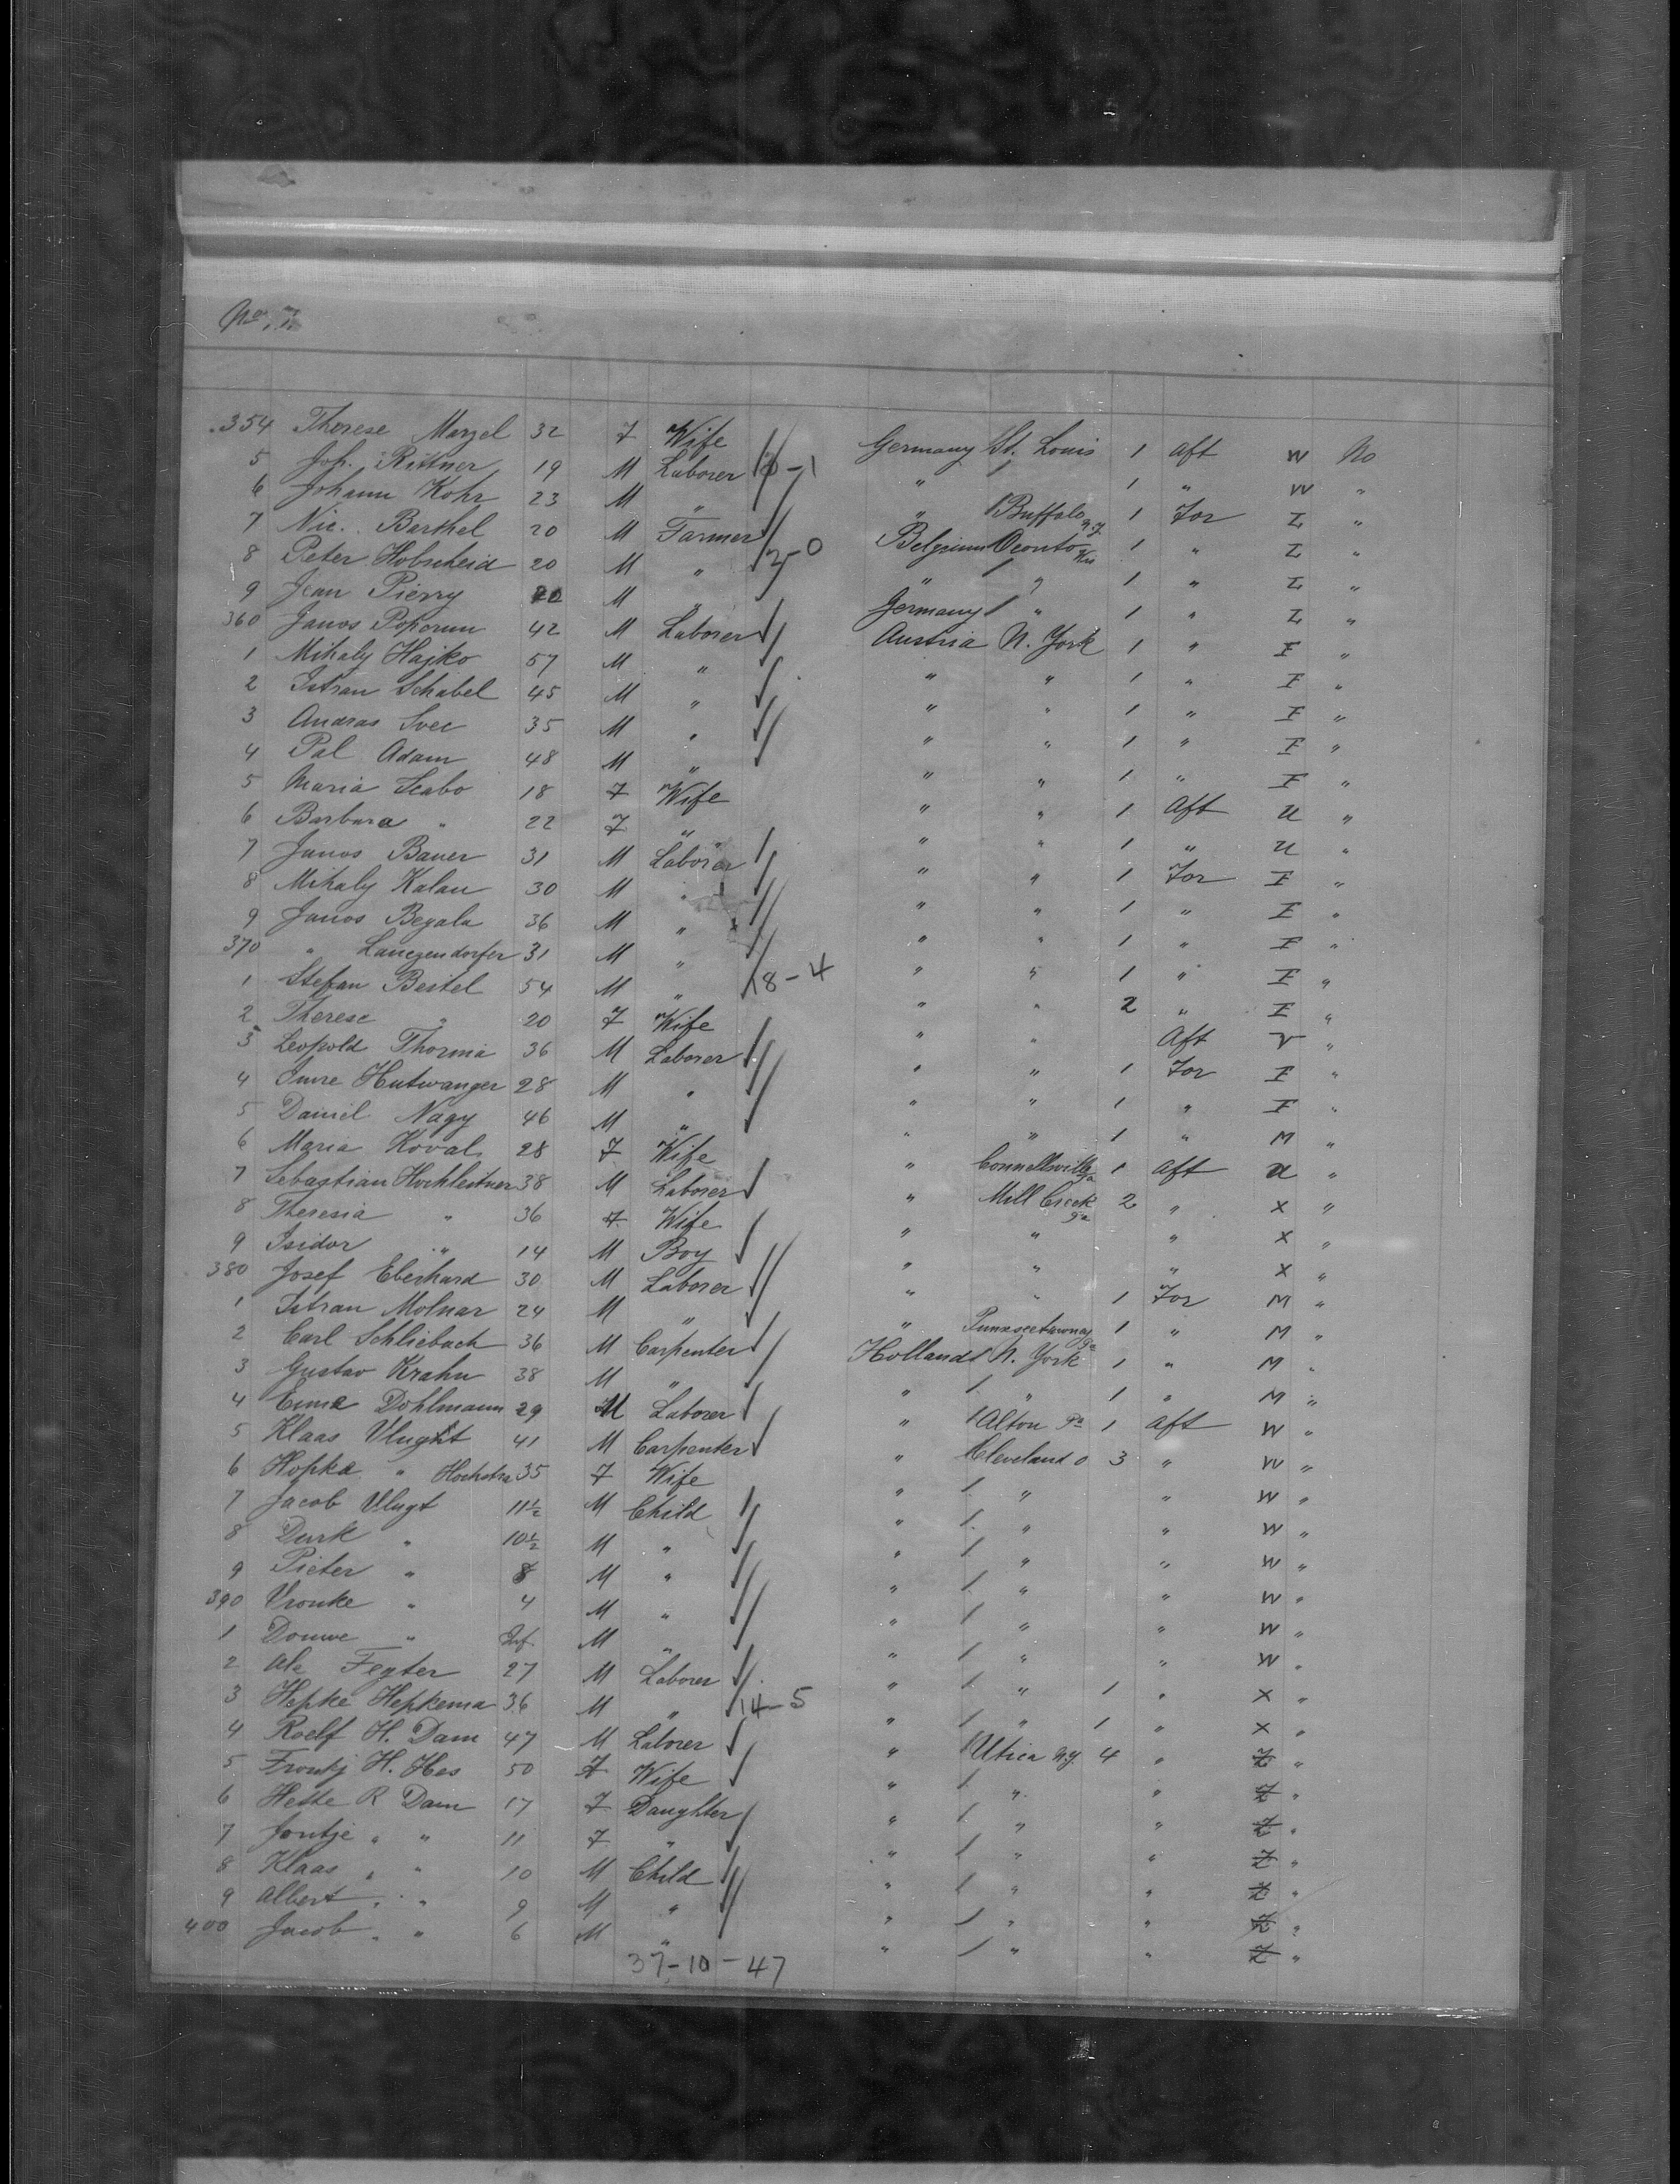 No. 7.
354 Therese Marzel 32 F Wife Germany St. Louis 1 Aft W No
5 Joh. Rittner 19 M Laborer 10-1 " 1 " W "
6 Johann Kohr 23 M " " Buffalo N.Y. 1 For Z "
7 Nic. Barthel 20 M Farmer Belgium Oconto Wis 1 " Z "
8 Peter Hobscheid 20 M " 3-0 " " 1 " Z "
9 Jean Pierry 20 M " Germany " 1 " Z "
360 Janos Poporun 42 M Laborer Austria N. York 1 " I "
1 Mihaly Hajko 57 M " " " 1 " I "
2 Istvan Schabel 45 M " " " 1 " I "
3 Andras Svec 35 M " " " 1 " I "
4 Pal Adam 48 M " " " 1 " I "
5 Maria Scabo 18 F Wife " " 1 Aft U "
6 Barbara " 22 F " " " 1 " U "
7 Janos Bauer 31 M Laborer " " 1 For I "
8 Mihaly Kalau 30 M " " " 1 " I "
9 Janos Begala 36 M " " " 1 " I "
370 " Langendorfer 31 M " " " 1 " I "
1 Stefan Beitel 54 M " 18-4 " " 2 " I "
2 Therese " 20 F Wife " " Aft V "
3 Leopold Thorma 36 M Laborer " " 1 For I "
4 Imre Hutwanger 28 M " " " 1 " I "
5 Daniel Nagy 46 M " " " 1 " M "
6 Maria Koval 28 F Wife " Connellsville Pa 1 Aft U "
7 Sebastian Hochleitner 38 M Laborer " Mill Creek Pa 2 " X "
8 Theresia " 36 F Wife " " " X "
9 Isidor " 14 M Boy " " " X "
380 Josef Eberhard 30 M Laborer " " 1 For M "
1 Istvan Molnar 24 M " " Punxsectawney Pa 1 " M "
2 Carl Schliebach 36 M Carpenter Holland N. York 1 " M "
3 Gustav Krahn 38 M " " " 1 " M "
4 Dohlmann 29 M Laborer " Alton Pa 1 Aft W "
5 Klaas Vlught 41 M Carpenter " Cleveland O 3 " W "
6 Hopka " Hochstra 35 F Wife " " " W "
7 Jacob Vlugt 11½ M Child " " " W "
8 Durk " 10½ M " " " " W "
9 Pieter " 8 M " " " " W "
390 Vronke " 4 M " " " " W "
1 Douwe " Inf M " " " " W "
2 Ale Fegter 27 M Laborer " " 1 " X "
3 Hepke Hepkema 36 M " 14-5 " " 1 " X "
4 Roelf H. Dam 47 M Laborer " Utica N.Y. 4 " Z "
5 Frontj H. Hes 50 F Wife " " " Z "
6 Hette R Dam 17 F Daughter " " " Z "
7 Jontje " " 11 F " " " " Z "
8 Klaas " " 10 M Child " " " Z "
9 Albert " " 9 M " " " " Z "
400 Jacob " " 6 M " " " " Z "
37-10-47